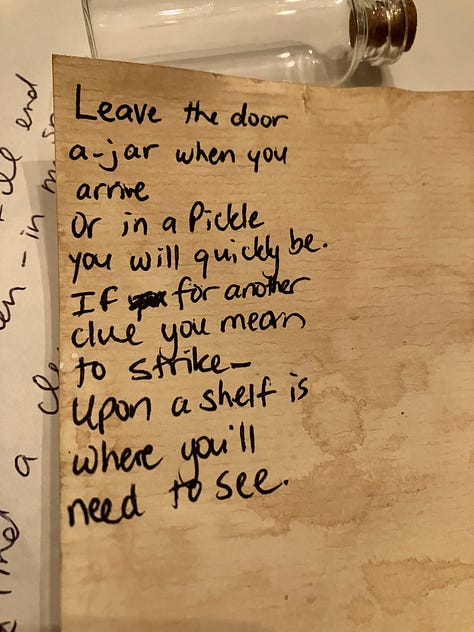 Leave the door
a-jar when you
arrive
Or in a Pickle
you will quickly be.
If for another
clue you mean
to strike-
Upon a shelf is
where you'll
need to see.
end
- in
a